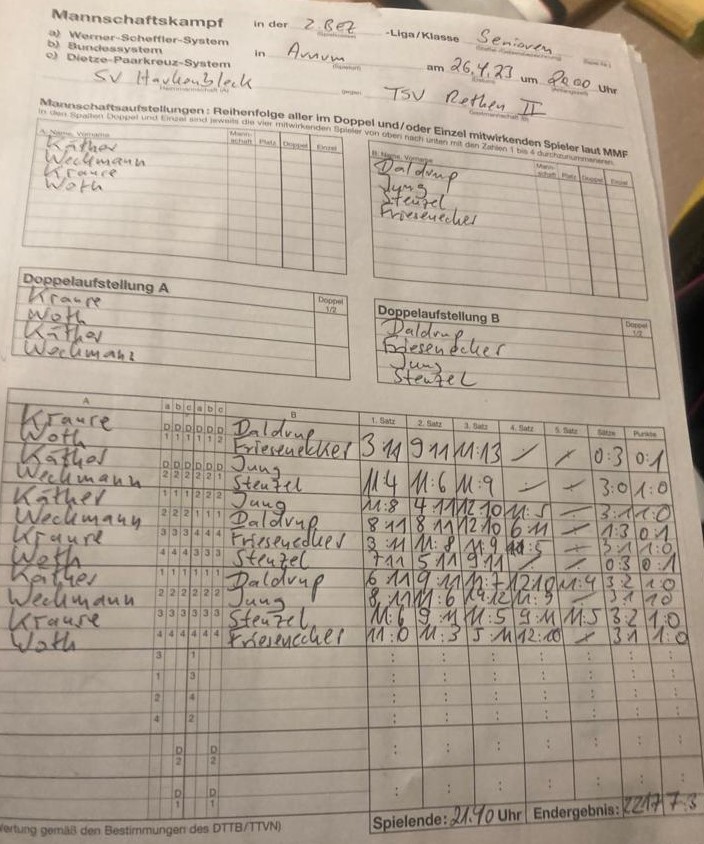 Mannschaftskampf in der 2. Bez -Liga/Klasse Senioren
a) Werner-Scheffler-System
b) Bundessystem in Arnum am 26.4.23 um 2000 Uhr
c) Dietze-Paarkreuz-System
SV Harkenbleck gegen TSV Rethen II
Mannschaftsaufstellungen: Reihenfolge aller im Doppel und/oder Einzel mitwirkenden Spieler laut MMF
In den Spalten Doppel und Einzel sind jeweils die vier mitwirkenden Spieler von oben nach unten mit den Zahlen 1 bis 4 durchzunummerieren.
A: Name, Vorname Mann-schaft Platz Doppel Einzel
Käther
Weckmann
Krause
Woth
B: Name, Vorname Mann-schaft Platz Doppel Einzel
Daldrup
Jung
Stenzel
Friesenecker
Doppelaufstellung A Doppel 1/2
Krause
Woth
Käther
Weckmann
Doppelaufstellung B Doppel 1/2
Daldrup
Friesenecker
Jung
Stenzel
A a b c a b c B 1. Satz 2. Satz 3. Satz 4. Satz 5. Satz Sätze Punkte
Krause D D D D D D Daldrup
Woth 1 1 1 1 1 2 Friesenecker 3:11 9:11 11:13 0:3 0:1
Käther D D D D D D Jung
Weckmann 2 2 2 2 2 1 Stenzel 11:4 11:6 11:9 3:0 1:0
Käther 1 1 1 2 2 2 Jung 11:8 4:11 12:10 11:5 3:1 1:0
Weckmann 2 2 2 1 1 1 Daldrup 8:11 8:11 12:10 6:11 1:3 0:1
Krause 3 3 3 4 4 4 Friesenecker 3:11 11:8 11:9 11:5 3:1 1:0
Woth 4 4 4 3 3 3 Stenzel 7:11 5:11 9:11 0:3 0:1
Käther 1 1 1 1 1 1 Daldrup 6:11 9:11 11:7 12:10 11:4 3:2 1:0
Weckmann 2 2 2 2 2 2 Jung 8:11 11:6 14:12 11:9 3:1 1:0
Krause 3 3 3 3 3 3 Stenzel 11:6 9:11 11:5 9:11 11:5 3:2 1:0
Woth 4 4 4 4 4 4 Friesenecker 11:0 11:3 5:11 12:10 3:1 1:0
3 1
1 3
2 4
4 2
D D
2 2
D D
1 1
Wertung gemäß den Bestimmungen des DTTB/TTVN)
Spielende: 21.40 Uhr Endergebnis: 22:17 7:3